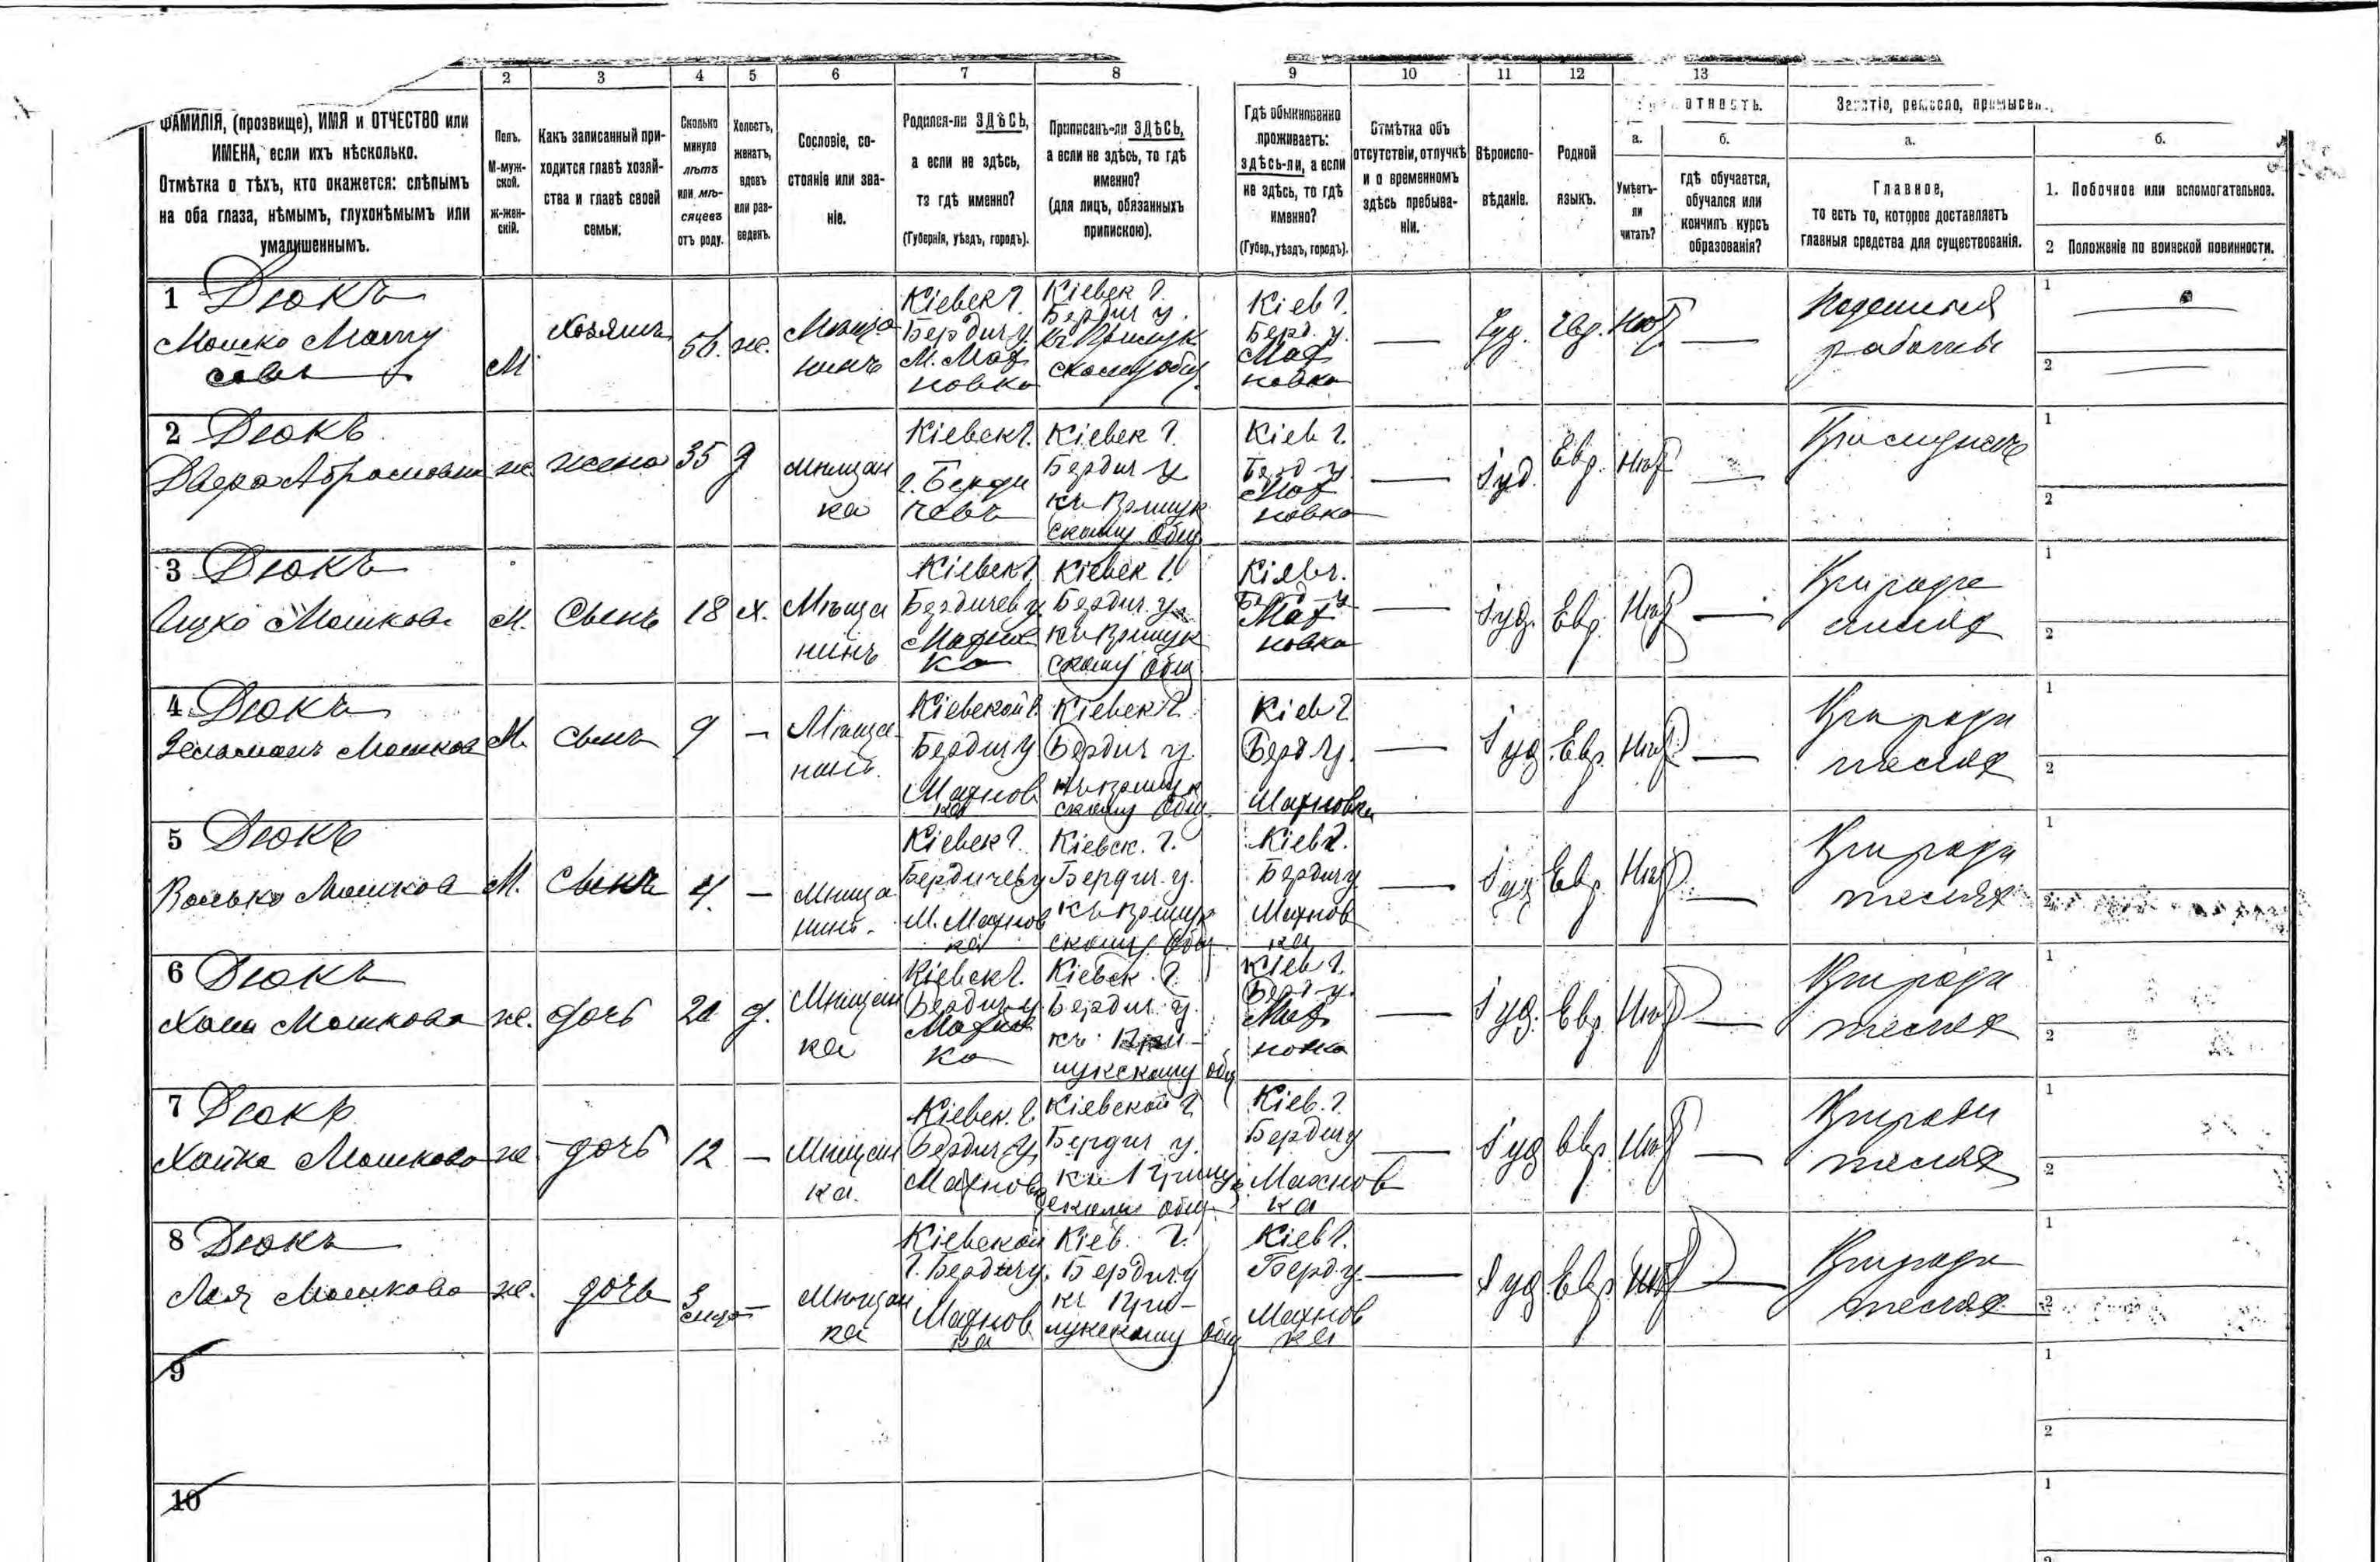 2 3 4 5 6 7 8 9 10 11 12 13
ФАМИЛІЯ, (прозвище), ИМЯ и ОТЧЕСТВО или
ИМЕНА, если ихъ нѣсколько.
Отмѣтка о тѣхъ, кто окажется: слѣпымъ
на оба глаза, нѣмымъ, глухонѣмымъ или
умалишеннымъ.
Полъ.
М-муж-
ской.
ж-жен-
скій.
Какъ записанный при-
ходится главѣ хозяй-
ства и главѣ своей
семьи.
Сколько
минуло
лѣтъ
или мѣ-
сяцевъ
отъ роду.
Холостъ,
женатъ,
вдовъ
или раз-
веденъ.
Сословіе, со-
стояніе или зва-
ніе.
Родился-ли ЗДѢСЬ,
а если не здѣсь,
то гдѣ именно?
(Губернія, уѣздъ, городъ).
Приписанъ-ли ЗДѢСЬ,
а если не здѣсь, то гдѣ
именно?
(для лицъ, обязанныхъ
припискою).
Гдѣ обыкновенно
проживаетъ:
здѣсь-ли, а если
не здѣсь, то гдѣ
именно?
(Губер., уѣздъ, городъ).
Отмѣтка объ
отсутствіи, отлучкѣ
и о временномъ
здѣсь пребыва-
ніи.
Вѣроиспо-
вѣданіе.
Родной
языкъ.
отность.
а.
Умѣетъ-
ли
читать?
б.
гдѣ обучается,
обучался или
кончилъ курсъ
образованія?
Занятіе, ремесло, промысел
а.
Главное,
то есть то, которое доставляетъ
главныя средства для существованія.
б.
1. Побочное или вспомогательное.
2 Положеніе по воинской повинности.
1 Дюкъ
Мошко
М
Хозяинъ
56. же.
Мѣща
нинъ
Кіевск г.
Бердич у.
М. Мах
новка
Кіевск г.
Бердич у.
къ Прилук
скому общ
Кіев г.
Берд. у.
Мах
новка
—
Іуд. Евр. Нѣт —
Поденныя
работы
1 —
2 —
2 Дюкъ
Двера Абрамовна
же жена 35 з
мѣщан
ка
Кіевск г.
г. Берди
чевъ
Кіевск г.
Бердич у
къ Прилук
скому Общ
Кіев г.
Берд у.
Мах
новка
—
Іуд. Евр. Нѣт —
1
2
3 Дюкъ
Ицко Мошков
М. Сынъ 18 х. Мѣща
нинъ
Кіевск г.
Бердичев у
Махнов
ка
Кіевск г.
Бердич. у.
къ Прилук
скому Общ
Кіев г.
Берд у
Мах
новка
—
Іуд. Евр. Нѣт —
При роди
теляхъ
1
2
4 Дюкъ
Зельманъ Мошков
М. сынъ 9 — Мѣща
нинъ.
Кіевской г.
Бердич у
Махнов
ка
Кіевск г.
Бердич у.
къ Прилук
скому Общ.
Кіев г
Берд у.
Махновка
—
Іуд. Евр. Нѣт —
При роди
теляхъ
1
2
5 Дюкъ
Волько Мошков
М. Сынъ 4. — Мѣща
нинъ.
Кіевск г.
Бердичев у
М. Махнов
ка
Кіевск. г.
Бердич. у.
къ Прилук
скому Общ
Кіев г.
Бердич у
Махнов
ка
—
Іуд Евр. Нѣт —
При роди
теляхъ
1
2
6 Дюкъ
Мошкова
же. дочь з. Мѣщан
ка
Кіевск г.
Бердич у
Махнов
ка
Кіевск. г.
Бердич. у.
къ При-
лукскому общ
Кіев г.
Берд у.
Мах
новка
—
Іуд. Евр. Нѣт —
При роди
теляхъ
1
2
7 Дюкъ
Хайка Мошкова
же дочь 12 — Мѣщан
ка.
Кіевск. г.
Бердич у,
Махновка
Кіевской г
Бердич у.
къ Прилук
скому общ.
Кіев. г.
Бердич у
Махнов
ка
—
Іуд Евр. Нѣт —
При роди
теляхъ
1
2
8 Дюкъ
Лея Мошкова
же. дочь 3 — Мѣщан
ка
Кіевской
г. Бердич у.
Махнов
ка
Кіев. г.
Бердич у
къ При-
лукскому Общ
Кіев г.
Берд у.
Махнов
ка
—
Іуд Евр Нѣт —
При роди
теляхъ
1
2
9
1
2
10
1
2